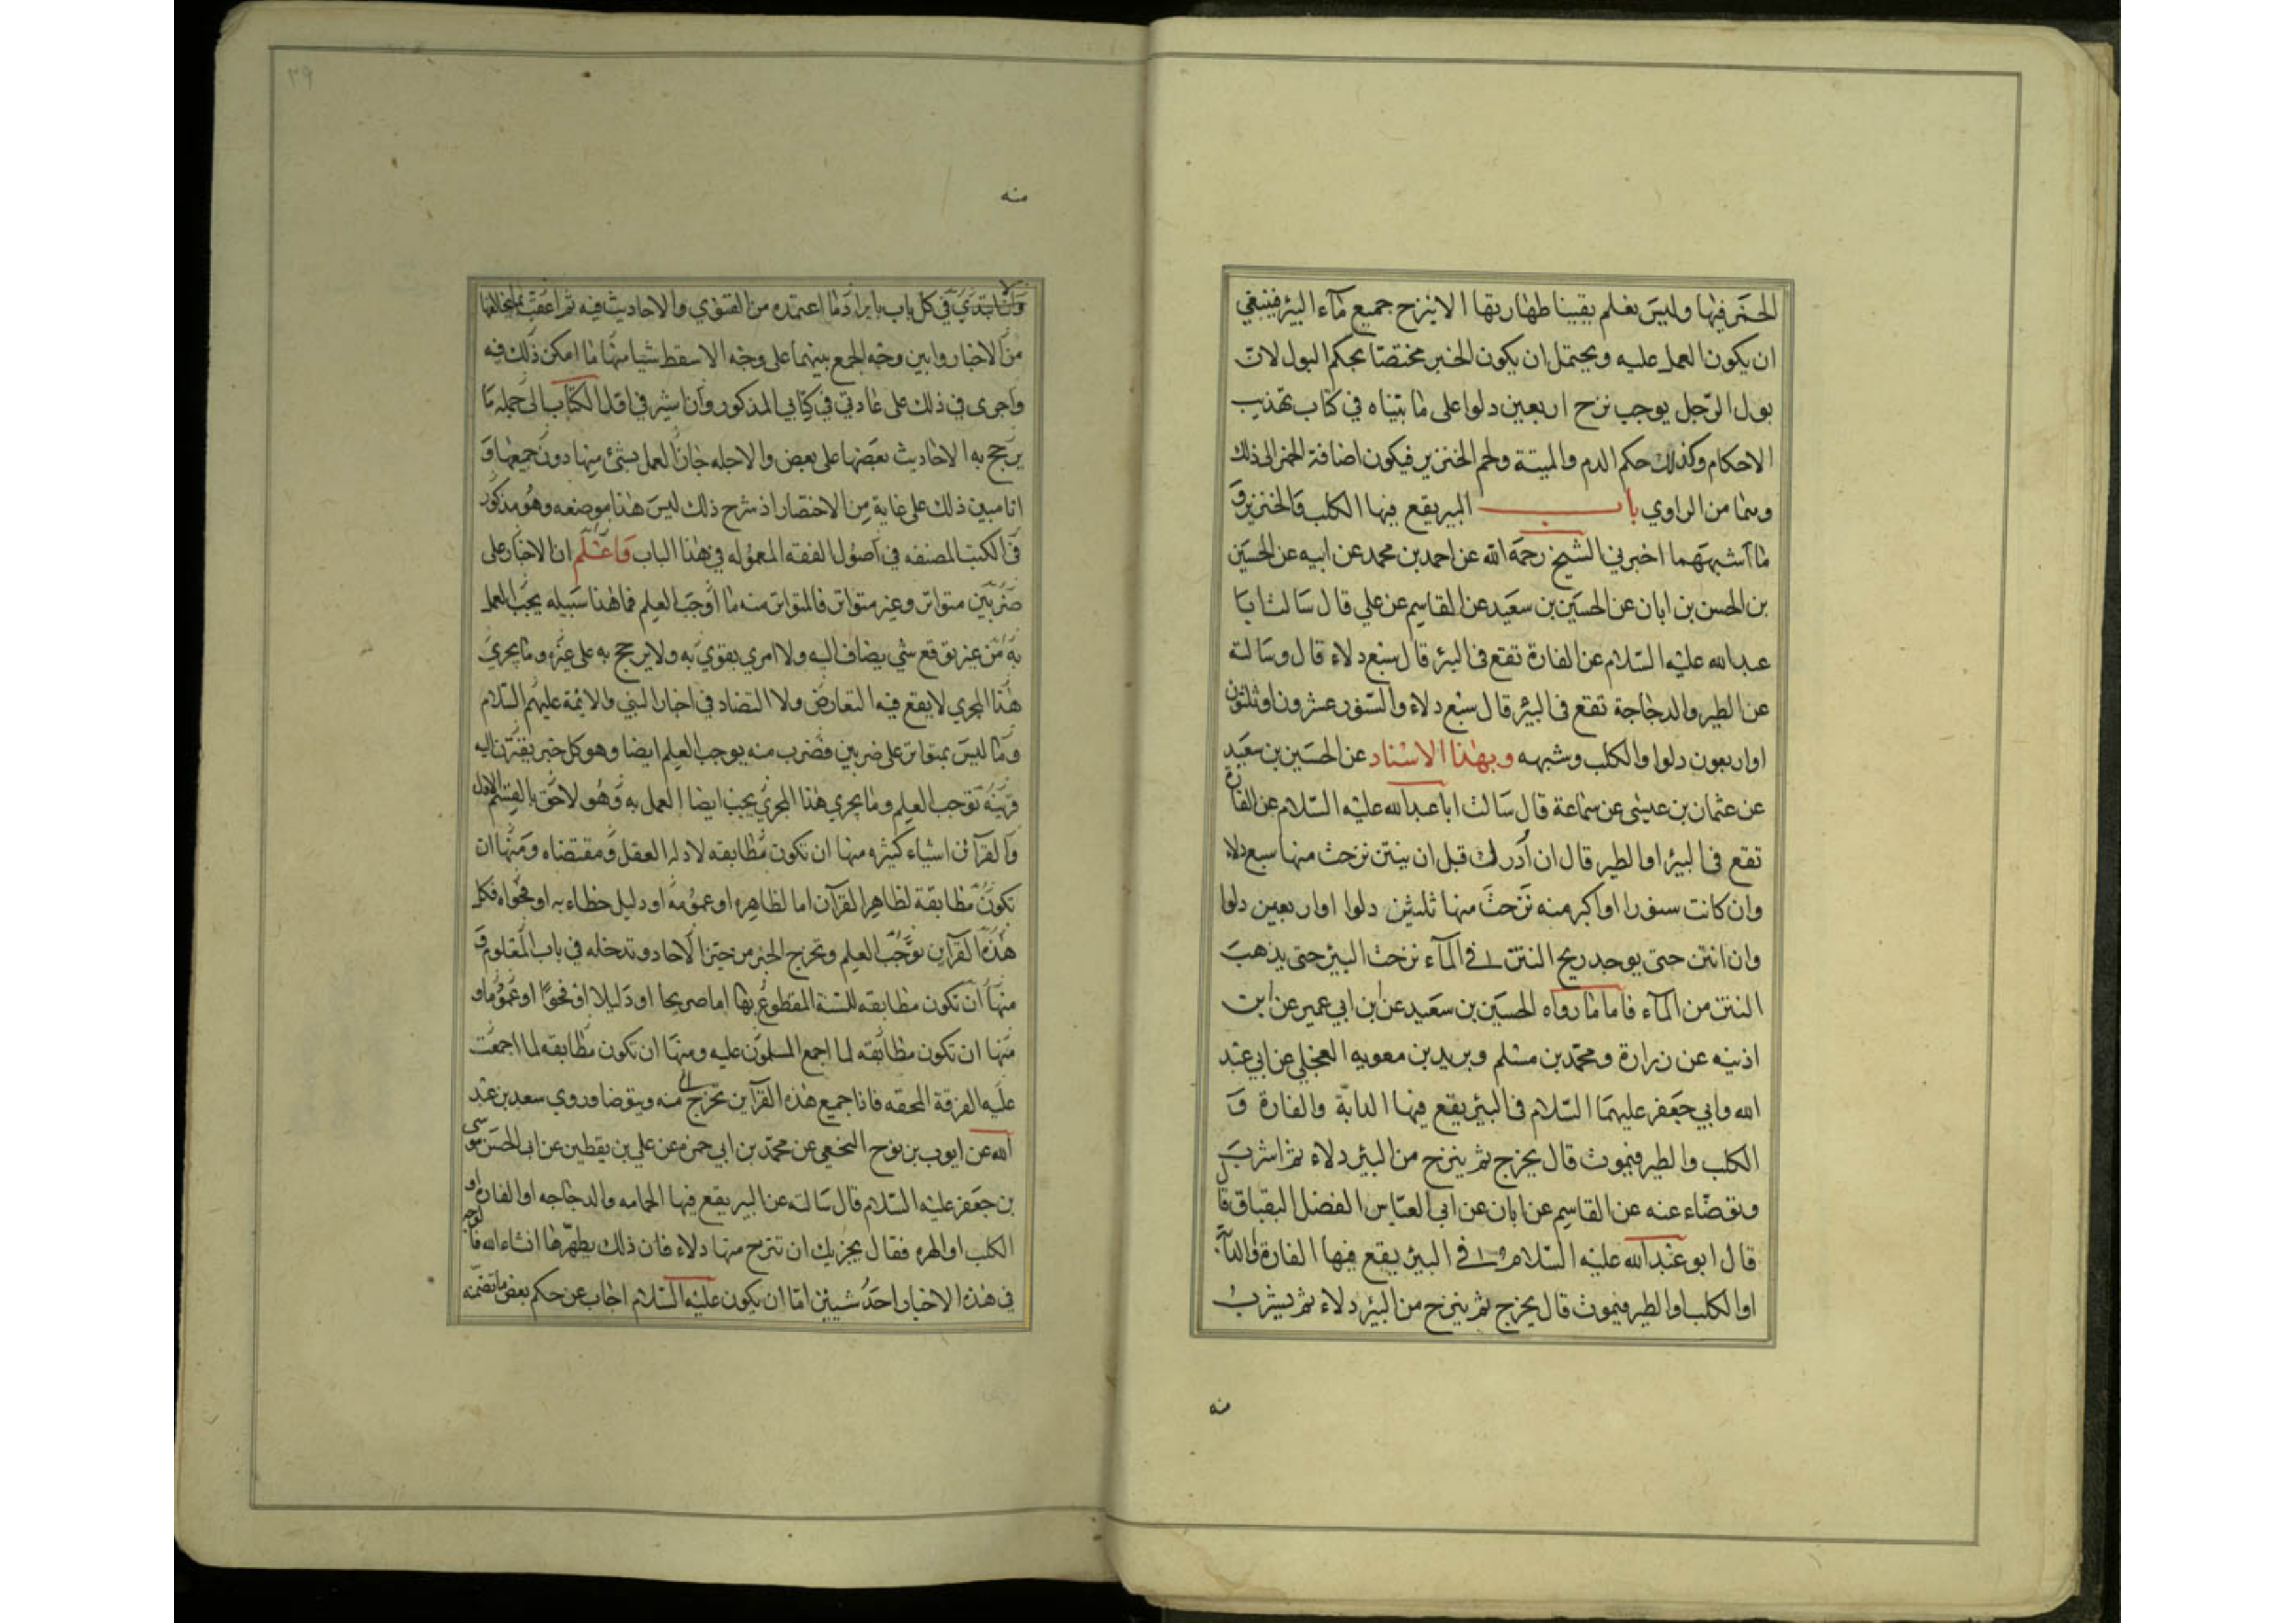 الخمر فيها وليس نعلم يقينا طهارتها الا بنزح جميع مآء البئر فينبغي
ان يكون العمل عليه ويحتمل ان يكون الخبر مختصّا بحكم البول لانّ
بول الرّجل يوجب نزح اربعين دلوا على ما بيّناه في كتاب تهذيب
الاحكام وكذلك حكم الدم والميتة ولحم الخنزير فيكون اضافة الخمر الى ذلك
وهما من الراوي باب البير يقع فيها الكلب والخنزير و
ما اشبههما اخبرني الشيخ رحمه الله عن احمد بن محمد عن ابيه عن الحسين
بن الحسن بن ابان عن الحسين بن سعيد عن القاسم عن علي قال سالت ابا
عبد الله عليه السّلام عن الفارة تقع في البئر قال سبع دلاء قال وسالته
عن الطير والدجاجة تقع في البئر قال سبع دلاء والسّنور عشرون او ثلثون
او اربعون دلوا والكلب وشبهه وبهذا الاسناد عن الحسين بن سعيد
عن عثمان بن عيسى عن سماعة قال سالت ابا عبد الله عليه السّلام عن الفارة
تقع في البئر او الطير قال ان أدركته قبل ان ينتن نزحت منها سبع دلاء
وان كانت سنورا او اكبر منه نزحت منها ثلثين دلوا او اربعين دلوا
وان انتن حتى يوجد ريح النتن في المآء نزحت البئر حتى يذهب
النتن من المآء فاما ما رواه الحسين بن سعيد عن بن ابي عمير عن ابن
اذينه عن زرارة ومحمّد بن مسلم وبريد بن معويه العجلي عن ابي عبد
الله وابي جعفر عليهما السّلام في البئر يقع فيها الدابّة والفارة و
الكلب والطير فيموت قال يخرج ثم ينزح من البئر دلاء ثم اشرب
وتوضّاء عنه عن القاسم عن ابان عن ابي العبّاس الفضل البقباق قال
قال ابو عبد الله عليه السّلام في البئر يقع فيها الفارة والدآبّة
او الكلب او الطير فيموت قال يخرج ثم ينزح من البئر دلاء ثم يشرب
منه
منه
وان ابتدي في كل باب بايراد ما اعتمده من الفتوى والاحاديث فيه ثم اعقب بما يخالفها
من الاخبار وابين وجه الجمع بينهما على وجه لا اسقط شيا منها ما امكن ذلك فيه
واجرى في ذلك على عادتي في كتابي المذكور وان اشير في اول الكتاب الى جمله ما
يرجح به الاحاديث بعضها على بعض والاجله جاز العمل بشئ منها دون جميعها و
انا مبين ذلك على غاية من الاختصار اذ شرح ذلك ليس هذا موضعه وهو مذكور
في الكتب المصنفه في اصول الفقه المعموله في هذا الباب فاعلم ان الاخبار على
ضربين متواتر وغير متواتر فالمتواتر منه ما أوجب العلم فما هذا سبيله يجب العمل
به من غير توقع شي يضاف اليه ولا امر يقوي به ولا يرجح به على غيره وما يجري
هذا المجري لا يقع فيه التعارض ولا التضاد في اخبار النبي والائمة عليهم السّلام
وما ليس بمتواتر على ضربين فضرب منه يوجب العلم ايضا وهو كل خبر يقترن اليه
قرينه توجب العلم وما يجري هذا المجري يجب ايضا العمل به وهو لاحق بالقسم الاول
والقرآئن اشياء كثيره منها ان تكون مطابقه لادله العقل ومقتضاه ومنها ان
تكون مطابقة لظاهر القرآن اما لظاهره او عمومه او دليل خطابه او فحواه فكل
هذه القرآين توجب العلم وتخرج الخبر من حيّز الاحاد وتدخله في باب المعلوم و
منها ان تكون مطابقه للسنة المقطوع بها اما صريحا او دليلا او فحوا او عموما و
منها ان تكون مطابقه لما اجمع المسلمون عليه ومنها ان تكون مطابقه لما اجمعت
عليه الفرقة المحقه فانا جميع هذه القرآين تخرج منه ويتوضا وروي سعد بن عبد
الله عن ايوب بن نوح النخعي عن محمّد بن ابي حمزه عن علي بن يقطين عن ابي الحسن موسى
بن جعفر عليه السّلام قال سالته عن البير يقع فيها الحمامه والدجاجه او الفارة او
الكلب او الهره فقال يجزيك ان تنزح منها دلاء فان ذلك يطهّرها انشاء الله فالوجه
في هذه الاخبار احد شيئين امّا ان يكون عليه السّلام اجاب عن حكم بعض ما تضمّنه